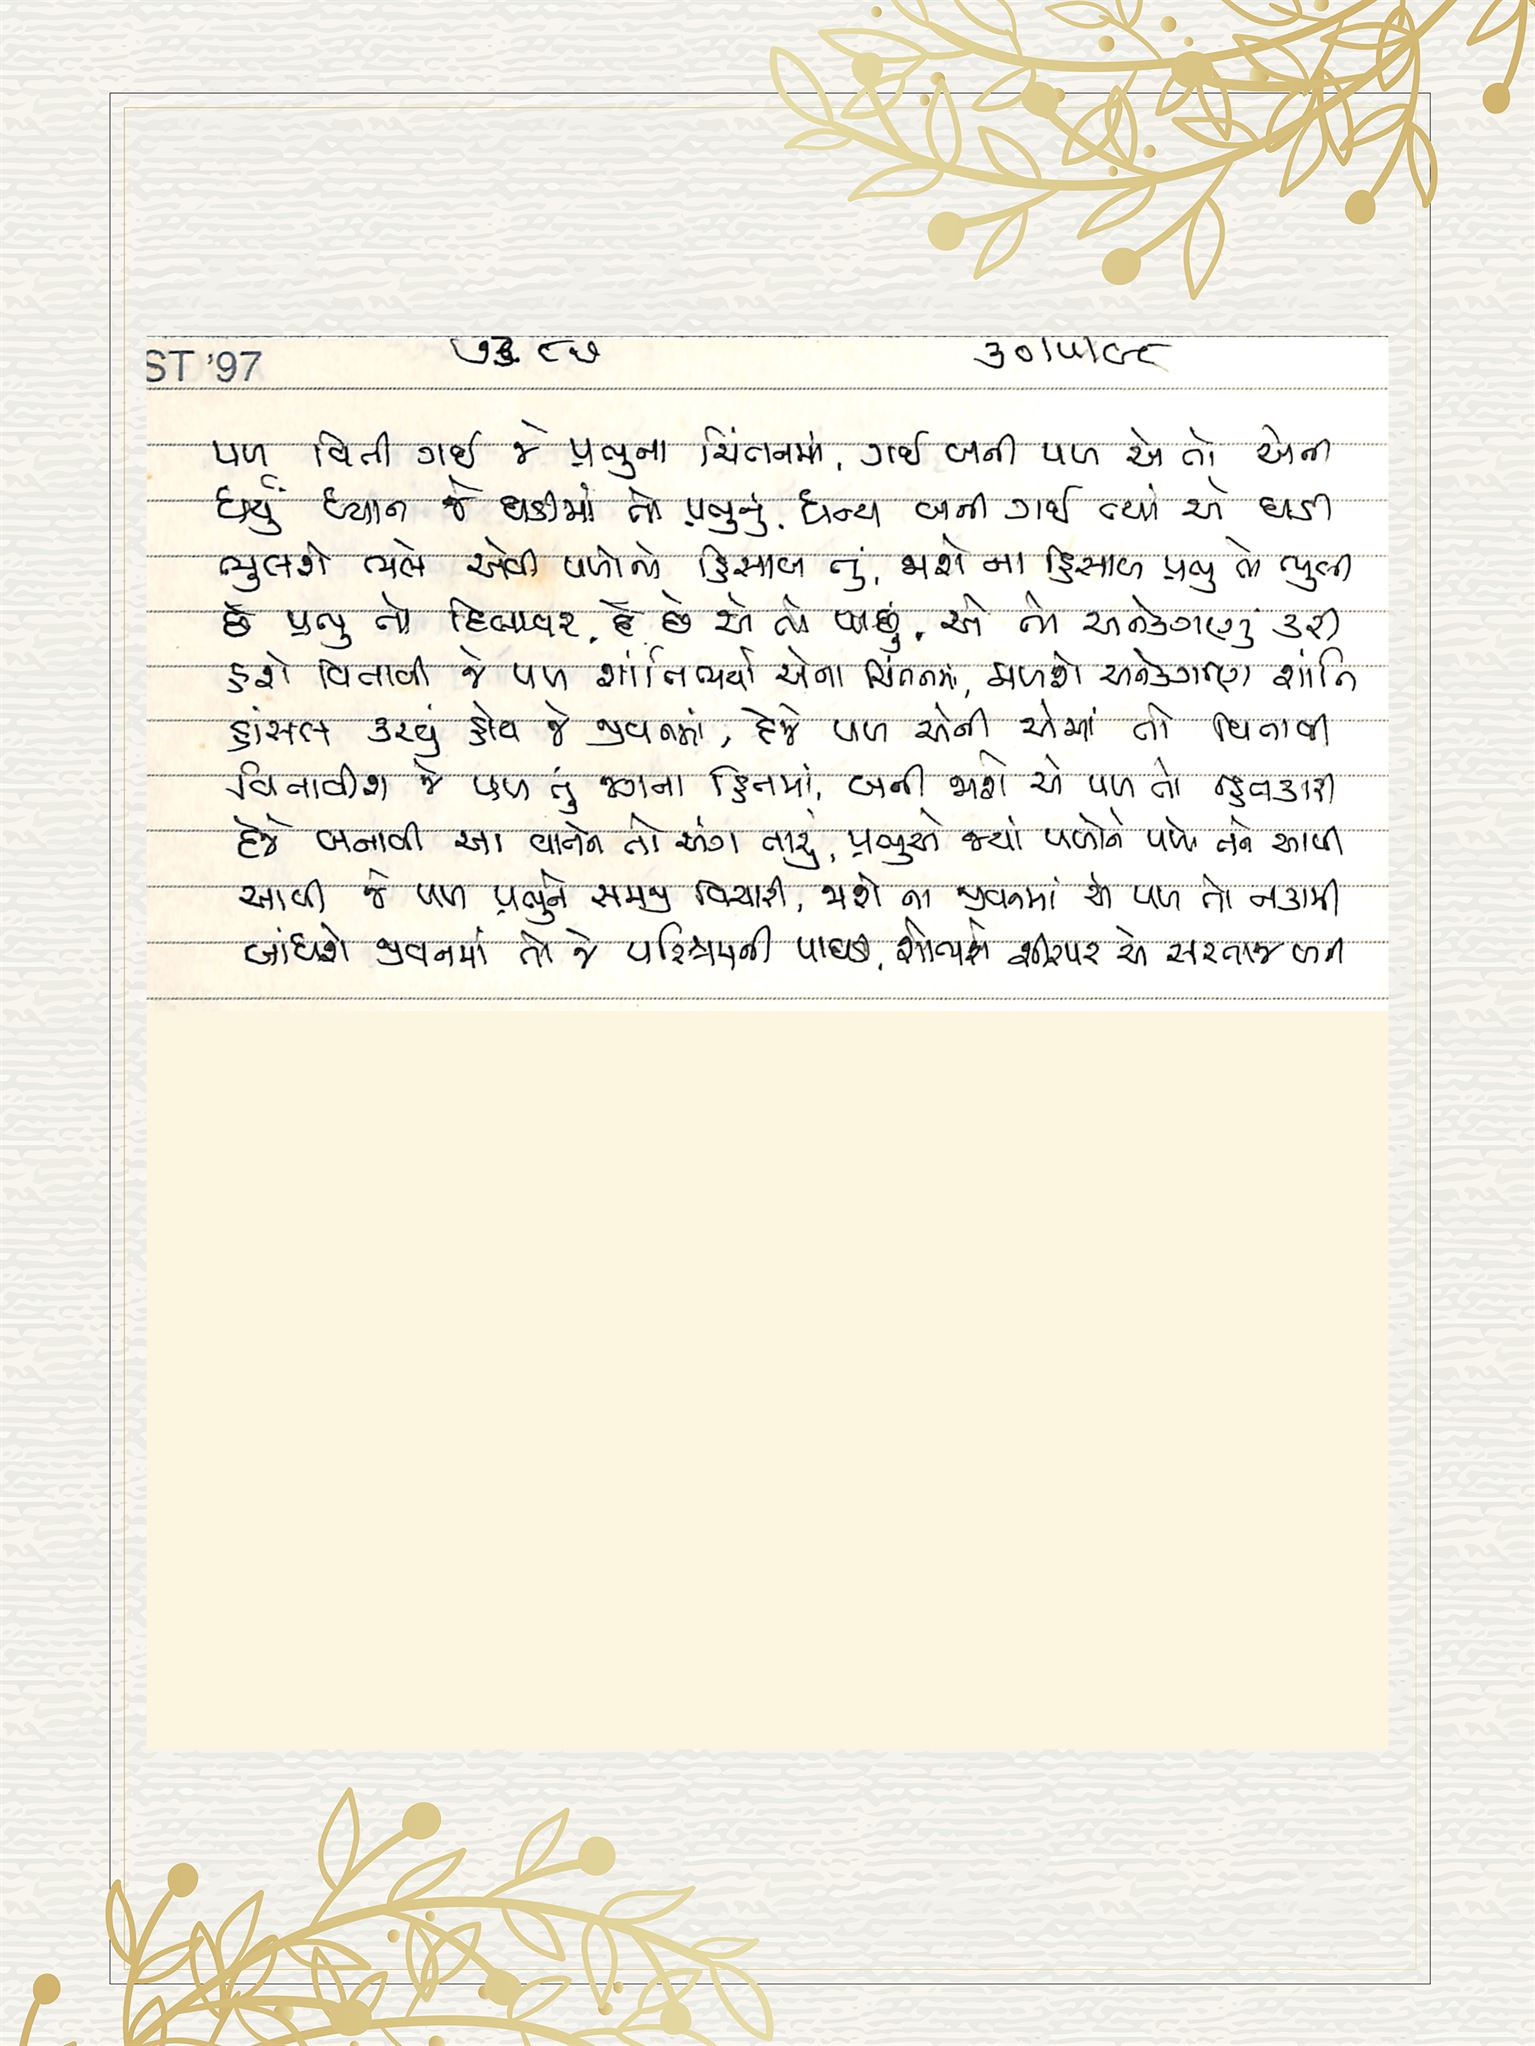 ST '97 ૭૩૯૭ ૩૦/૫/૯૮
પળ વિતી ગઈ જે પ્રભુના ચિંતનમાં, ગઈ બની પળ એ તો એની
ધર્યું ધ્યાન જે ઘડીમાં તો પ્રભુનું, ધન્ય બની ગઈ ત્યાં એ ઘડી
ભુલશે ભલે એવી પળોનો હિસાબ તું, જાશે ના હિસાબ પ્રભુ તો ભુલી
છે પ્રભુ તો દિલાવર, દે છે એ તો પાછું, એ તો અનેકગણું કરી
હશે વિતાવી જે પળ શાંતિભર્યા એના ચિંતનમાં, મળશે અનેકગણી શાંતિ
હાંસલ કરવું હોય જે જીવનમાં, દેજે પળ એની એમાં તો વિતાવી
વિતાવીશ જે પળ તું જગના હિતમાં, બની જાશે એ પળ તો હિતકારી
દેજે બનાવી આ વાતને તો અંગ તારું, પ્રભુએ જ્યાં પળોને પળો તને આપી
આવી જે પળ પ્રભુને સમજી વિચારી, જાશે ના જીવનમાં એ પળ તો નકામી
બાંધશે જીવનમાં તો જે પરિશ્રમની પાઘડી, શોભશે શીરપર એ સરતાજ બની